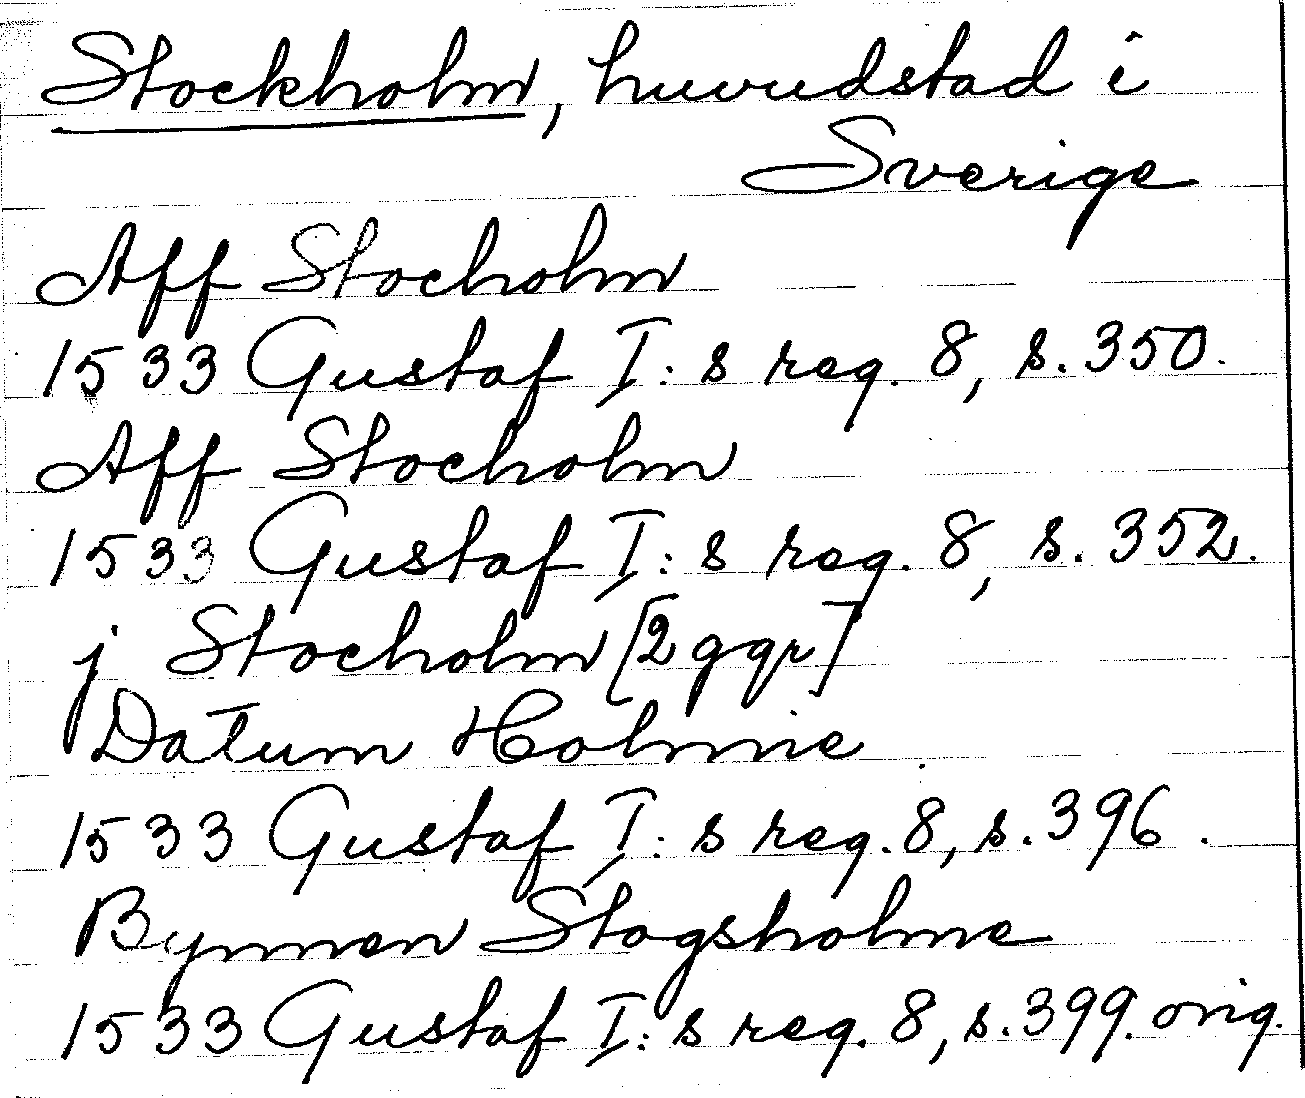 Stockholm, huvudstad i
Sverige
Aff Stocholm
1533 Gustaf I:s reg. 8, s. 350.
Aff Stocholm
1533 Gustaf I:s reg. 8, s. 352.
j Stocholm [2 ggr]
Datum Holmie
1533 Gustaf I:s reg. 8, s. 396.
Bynnen Stogsholme
1533 Gustaf I:s reg. 8, s. 399. orig.